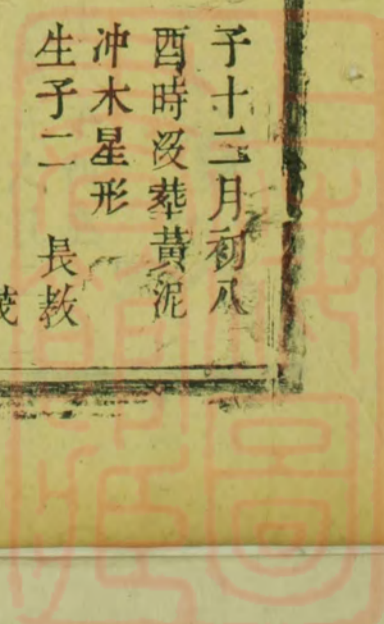 子十二月初八
酉時没葬黃泥
冲木星形
生子二 長教
茂